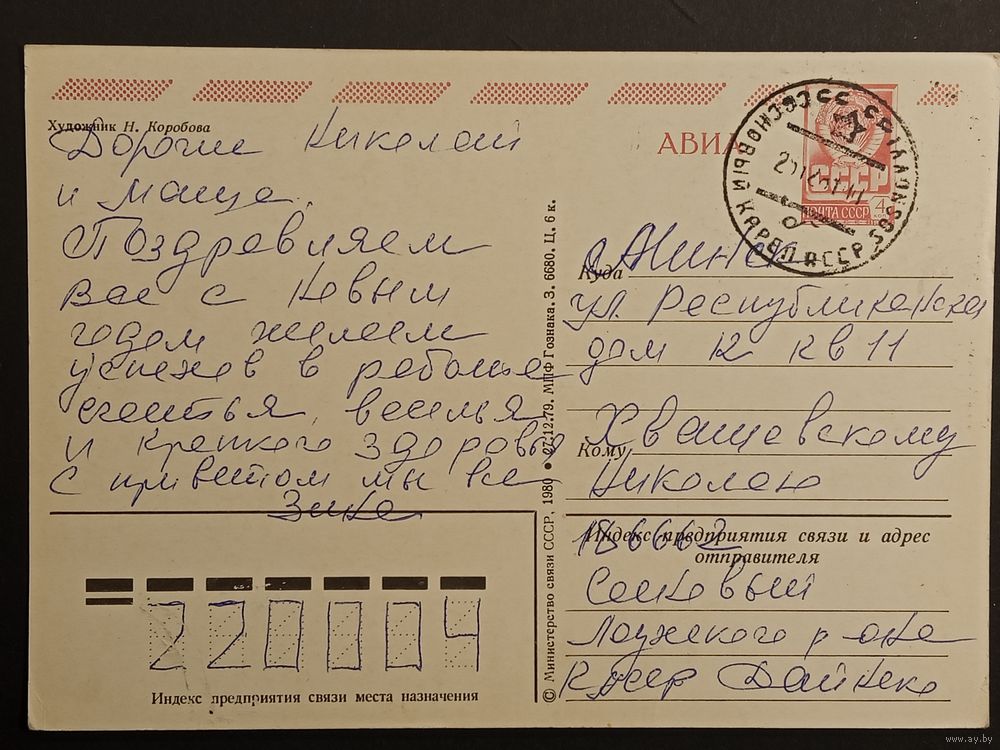 Художник Н. Коробова
Дорогие Николай
и Маша.
Поздравляем
Вас с Новым
годом желаем
успехов в работе
счастья, веселья
и крепкого здоровья
С приветом мы все
Зика
© Министерство связи СССР, 1980 • 27.12.79. МПФ Гознака. З. 6680. Ц. 6 к.
АВИА
СССР
ПОЧТА СССР 4
СОСНОВЫЙ КАРЕЛ АССР
Куда
г. Минск
ул. Республиканская
дом 12 кв 11
Кому
Хващевскому
Николаю
Индекс предприятия связи и адрес
отправителя
186662
Сосновый
Лоухского р она
КАССР Дайнеко
220004
Индекс предприятия связи места назначения
www.ay.by